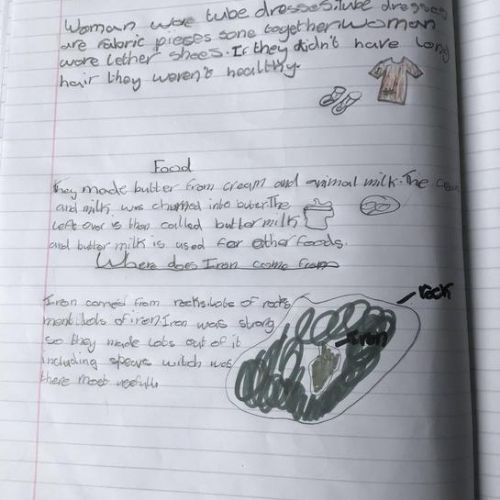 Woman wore tube dresses.Tube dresses
are fabric pieces sone together.Woman
wore lether shoes.If they didn't have long
hair they weren't healthy.
Food
They made butter from cream and animal milk.The cream
and milk was churned into buter.The
left over is then called buttermilk
and butter milk is used for other foods.
Where does Iron come from
Iron comed from rocks.Lots of rocks
ment lots of iron.Iron was strong
so they made lots out of it
including spears witch was
there most usefull.
rock
Iron